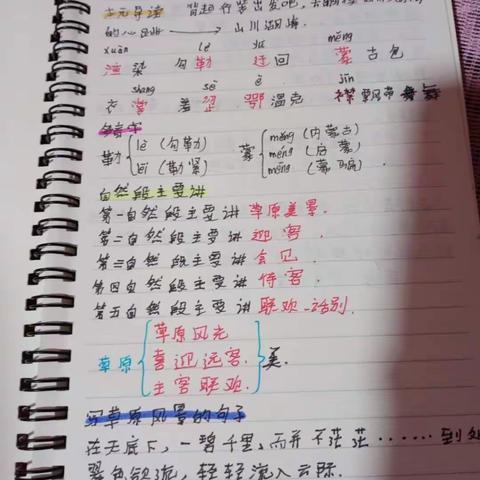 单元导读 背起行装出发吧,去触摸
的心跳 → 山川湖海.
xuàn lè yū měng
渲染 勾勒 迂回 蒙古包
shang sè è jīn
衣裳 羞涩 鄂温克 襟飘带舞
多音字
勒 { lè (勾勒) 蒙 { měng (内蒙古)
lēi (勒紧) méng (启蒙)
mēng (蒙骗)
自然段主要讲
第一自然段主要讲 草原美景.
第二自然段主要讲 迎客.
第三自然段主要讲 会见.
第四自然段主要讲 待客.
第五自然段主要讲 联欢-话别.
草原风光
草原 { 喜迎远客. } 美.
主客联欢.
写草原风景的句子
在天底下,一碧千里,而并不茫茫……到处
翠色欲流,轻轻流入云际.